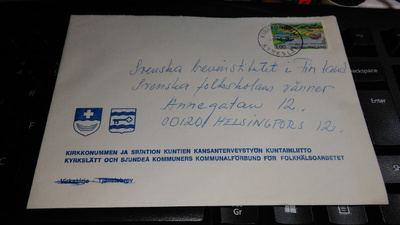 Svenska
i Finland
Svenska folkskolans vänner
Annegatan 12.
00120 HELSINGFORS 12.
KIRKKONUMMEN JA SIUNTION KUNTIEN KANSANTERVEYSTYÖN KUNTAINLIITTO
KYRKSLÄTT OCH SJUNDEÅ KOMMUNERS KOMMUNALFÖRBUND FÖR FOLKHÄLSOARBETET
Virkakirje Tjänstebrev
Backspace
Gr